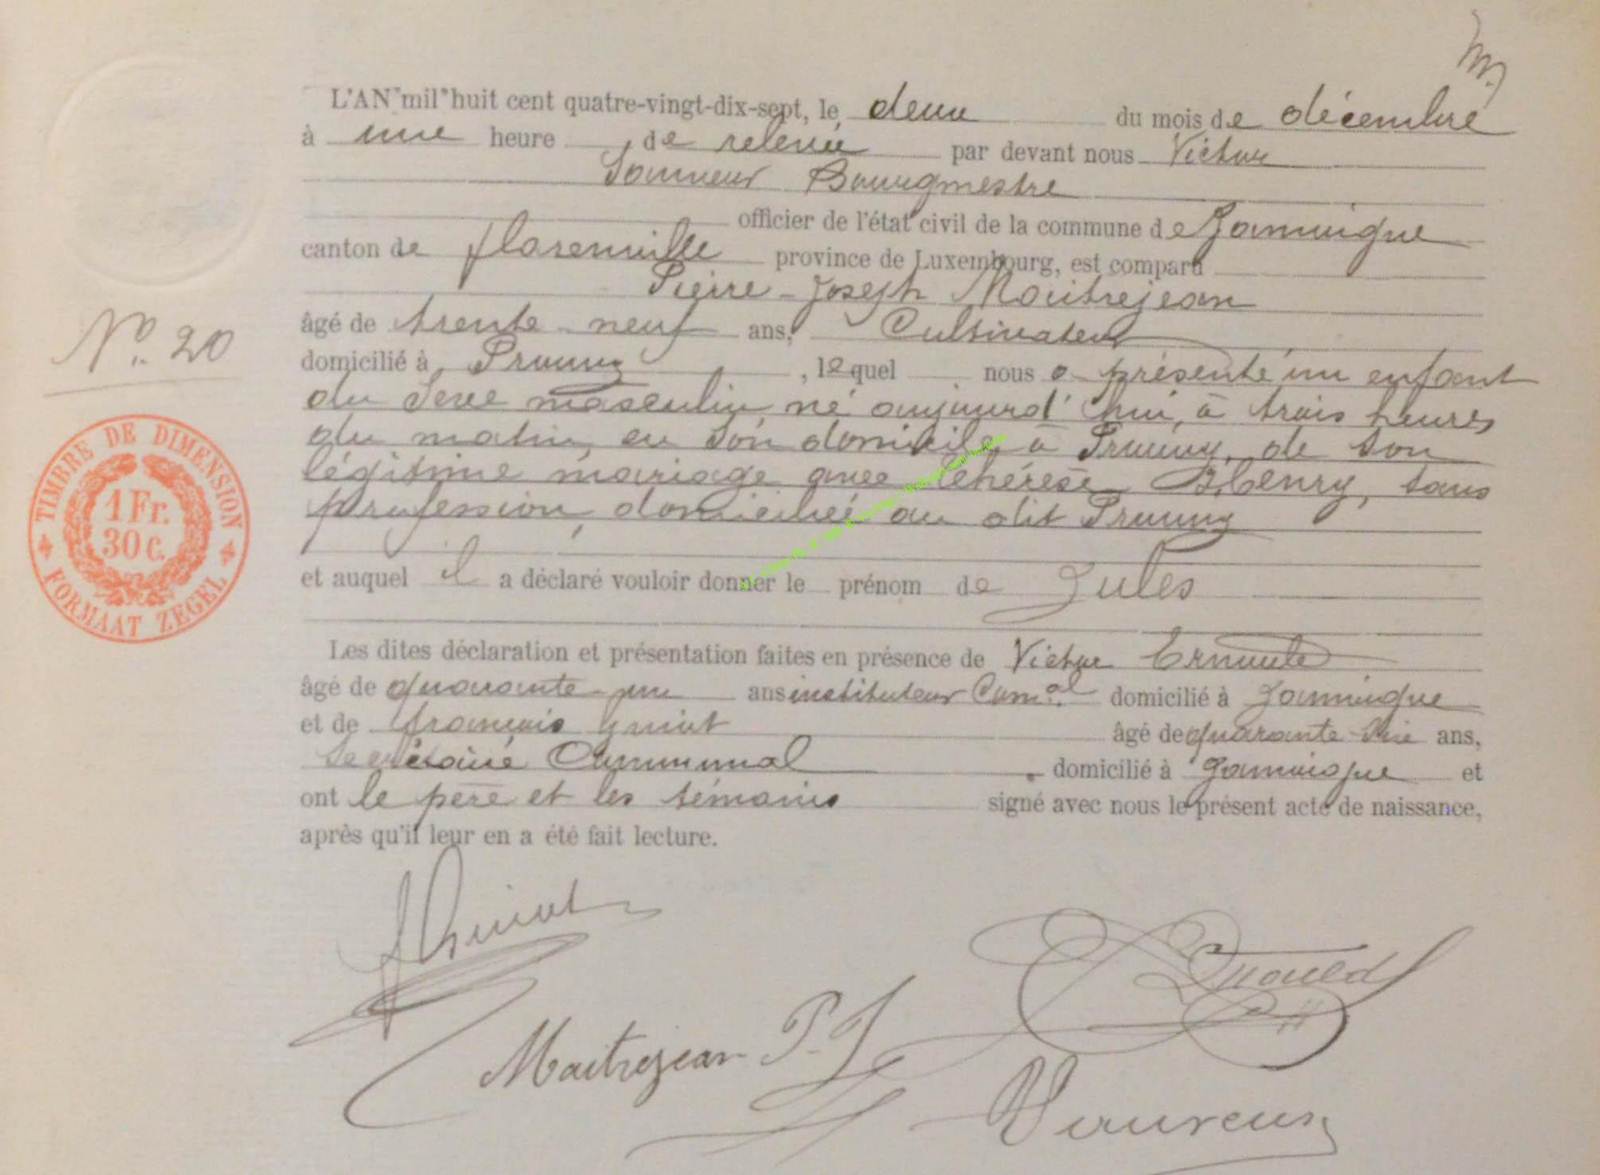 L'AN mil huit cent quatre-vingt-dix-sept, le deux du mois de décembre
à une heure de relevée par devant nous Victor
Bourgmestre
officier de l'état civil de la commune de Jamoigne
canton de florenville province de Luxembourg, est comparu
Pierre-Joseph Maitrejean
âgé de trente-neuf ans, Cultivateur
domicilié à Prouvy, lequel nous a présenté un enfant
du Sexe masculin né aujourd'hui, à trois heures
du matin, en son domicile à Prouvy, de son
légitime mariage avec thérèse Henry, sans
profession, domiciliée au dit Prouvy
et auquel il a déclaré vouloir donner le prénom de Jules
Les dites déclaration et présentation faites en présence de Victor
âgé de quarante-un ans instituteur Com.al domicilié à Jamoigne
et de françois âgé de quarante-six ans,
Secrétaire Communal domicilié à Jamoigne et
ont le père et les témoins signé avec nous le présent acte de naissance,
après qu'il leur en a été fait lecture.
No. 20
TIMBRE DE DIMENSION
1 Fr.
30 C.
FORMAAT ZEGEL
Maitrejean P-J